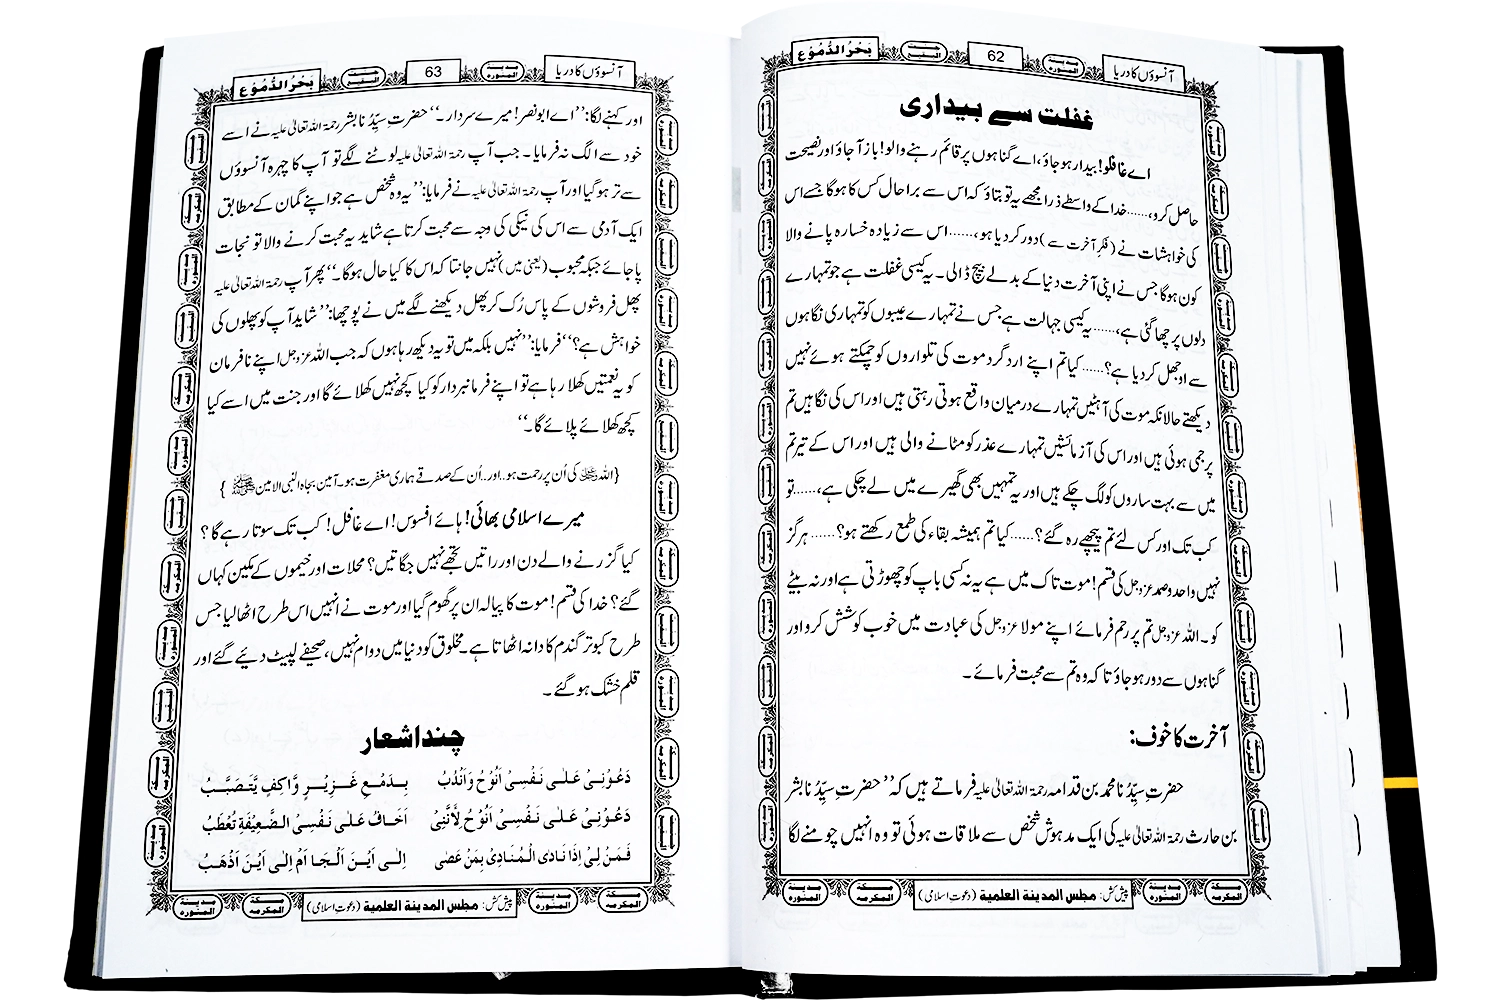 آنسوؤں کا دریا
62
بَحْرُ الدُّمُوْع
غفلت سے بیداری
اے غافلو! بیدار ہو جاؤ، اے گناہوں پر قائم رہنے والو! باز آجاؤ اور نصیحت
حاصل کرو، ...... خدا کے واسطے ذرا مجھے یہ تو بتاؤ کہ اس سے برا حال کس کا ہوگا جسے اس
کی خواہشات نے (فکرِ آخرت سے) دور کر دیا ہو، ...... اس سے زیادہ خسارہ پانے والا
کون ہوگا جس نے اپنی آخرت دنیا کے بدلے بیچ ڈالی۔ یہ کیسی غفلت ہے جو تمہارے
دلوں پر چھا گئی ہے، ...... یہ کیسی جہالت ہے جس نے تمہارے عیبوں کو تمہاری نگاہوں
سے اوجھل کر دیا ہے؟ ...... کیا تم اپنے ارد گرد موت کی تلواروں کو چمکتے ہوئے نہیں
دیکھتے حالانکہ موت کی آہٹیں تمہارے درمیان واقع ہوتی رہتی ہیں اور اس کی نگاہیں تم
پر جمی ہوئی ہیں اور اس کی آزمائشیں تمہارے عذر کو مٹانے والی ہیں اور اس کے تیر تم
میں سے بہت ساروں کو لگ چکے ہیں اور یہ تمہیں بھی گھیرے میں لے چکی ہے، ...... تو
کب تک اور کس لئے تم پیچھے رہ گئے؟ ...... کیا تم ہمیشہ بقاء کی طمع رکھتے ہو؟ ...... ہرگز
نہیں واحد و صمد عزوجل کی قسم! موت تاک میں ہے یہ نہ کسی باپ کو چھوڑتی ہے اور نہ بیٹے
کو۔ اللہ عزوجل تم پر رحم فرمائے اپنے مولا عزوجل کی عبادت میں خوب کوشش کرو اور
گناہوں سے دور ہو جاؤ تا کہ وہ تم سے محبت فرمائے۔
آخرت کا خوف:
حضرتِ سیِّدُنا محمد بن قدامہ رحمۃ اللہ تعالیٰ علیہ فرماتے ہیں کہ ’’حضرتِ سیِّدُنا بشر
بن حارث رحمۃ اللہ تعالیٰ علیہ کی ایک مدہوش شخص سے ملاقات ہوئی تو وہ انہیں چومنے لگا
پیش کش: مجلس المدینة العلمیة (دعوتِ اسلامی)
آنسوؤں کا دریا
63
بَحْرُ الدُّمُوْع
اور کہنے لگا: ’’اے ابو نصر! میرے سردار۔‘‘ حضرتِ سیِّدُنا بشر رحمۃ اللہ تعالیٰ علیہ نے اسے
خود سے الگ نہ فرمایا۔ جب آپ رحمۃ اللہ تعالیٰ علیہ لوٹنے لگے تو آپ کا چہرہ آنسوؤں
سے تر ہو گیا اور آپ رحمۃ اللہ تعالیٰ علیہ نے فرمایا: ’’یہ وہ شخص ہے جو اپنے گمان کے مطابق
ایک آدمی سے اس کی نیکی کی وجہ سے محبت کرتا ہے شاید یہ محبت کرنے والا تو نجات
پا جائے جبکہ محبوب (یعنی میں) نہیں جانتا کہ اس کا کیا حال ہوگا۔‘‘ پھر آپ رحمۃ اللہ تعالیٰ علیہ
پھل فروشوں کے پاس رُک کر پھل دیکھنے لگے میں نے پوچھا: ’’شاید آپ کو پھلوں کی
خواہش ہے؟‘‘ فرمایا: ’’نہیں بلکہ میں تو یہ دیکھ رہا ہوں کہ جب اللہ عزوجل اپنے نافرمان
کو یہ نعمتیں کھلا رہا ہے تو اپنے فرمانبردار کو کیا کچھ نہیں کھلائے گا اور جنت میں اسے کیا
کچھ کھلائے پلائے گا۔‘‘
{اللہ عزوجل کی اُن پر رحمت ہو.. اور.. اُن کے صدقے ہماری مغفرت ہو۔ آمین بجاہ النبی الامین ﷺ}
میرے اسلامی بھائی! ہائے افسوس! اے غافل! کب تک سوتا رہے گا؟
کیا گزرنے والے دن اور راتیں تجھے نہیں جگاتیں؟ محلات اور خیموں کے مکین کہاں
گئے؟ خدا کی قسم! موت کا پیالہ ان پر گھوم گیا اور موت نے انہیں اس طرح اٹھا لیا جس
طرح کبوتر گندم کا دانہ اٹھاتا ہے۔ مخلوق کو دنیا میں دوام نہیں، صحیفے لپیٹ دیئے گئے اور
قلم خشک ہو گئے۔
چند اشعار
دَعُوْنِیْ عَلٰی نَفْسِیْ اَنُوْحُ وَاَنْدُبُ بِدَمْعٍ غَزِیْرٍ وَّاکِفٍ یَّتَصَبَّبُ
دَعُوْنِیْ عَلٰی نَفْسِیْ اَنُوْحُ لِاَنَّنِیْ اَخَافُ عَلٰی نَفْسِیْ الضَّعِیْفَةِ تُعْطَبُ
فَمَنْ لِیْ اِذَا نَادَی الْمُنَادِیْ بِمَنْ عَصٰی اِلٰی اَیْنَ اَلْجَا اَمْ اِلٰی اَیْنَ اَذْهَبُ
پیش کش: مجلس المدینة العلمیة (دعوتِ اسلامی)